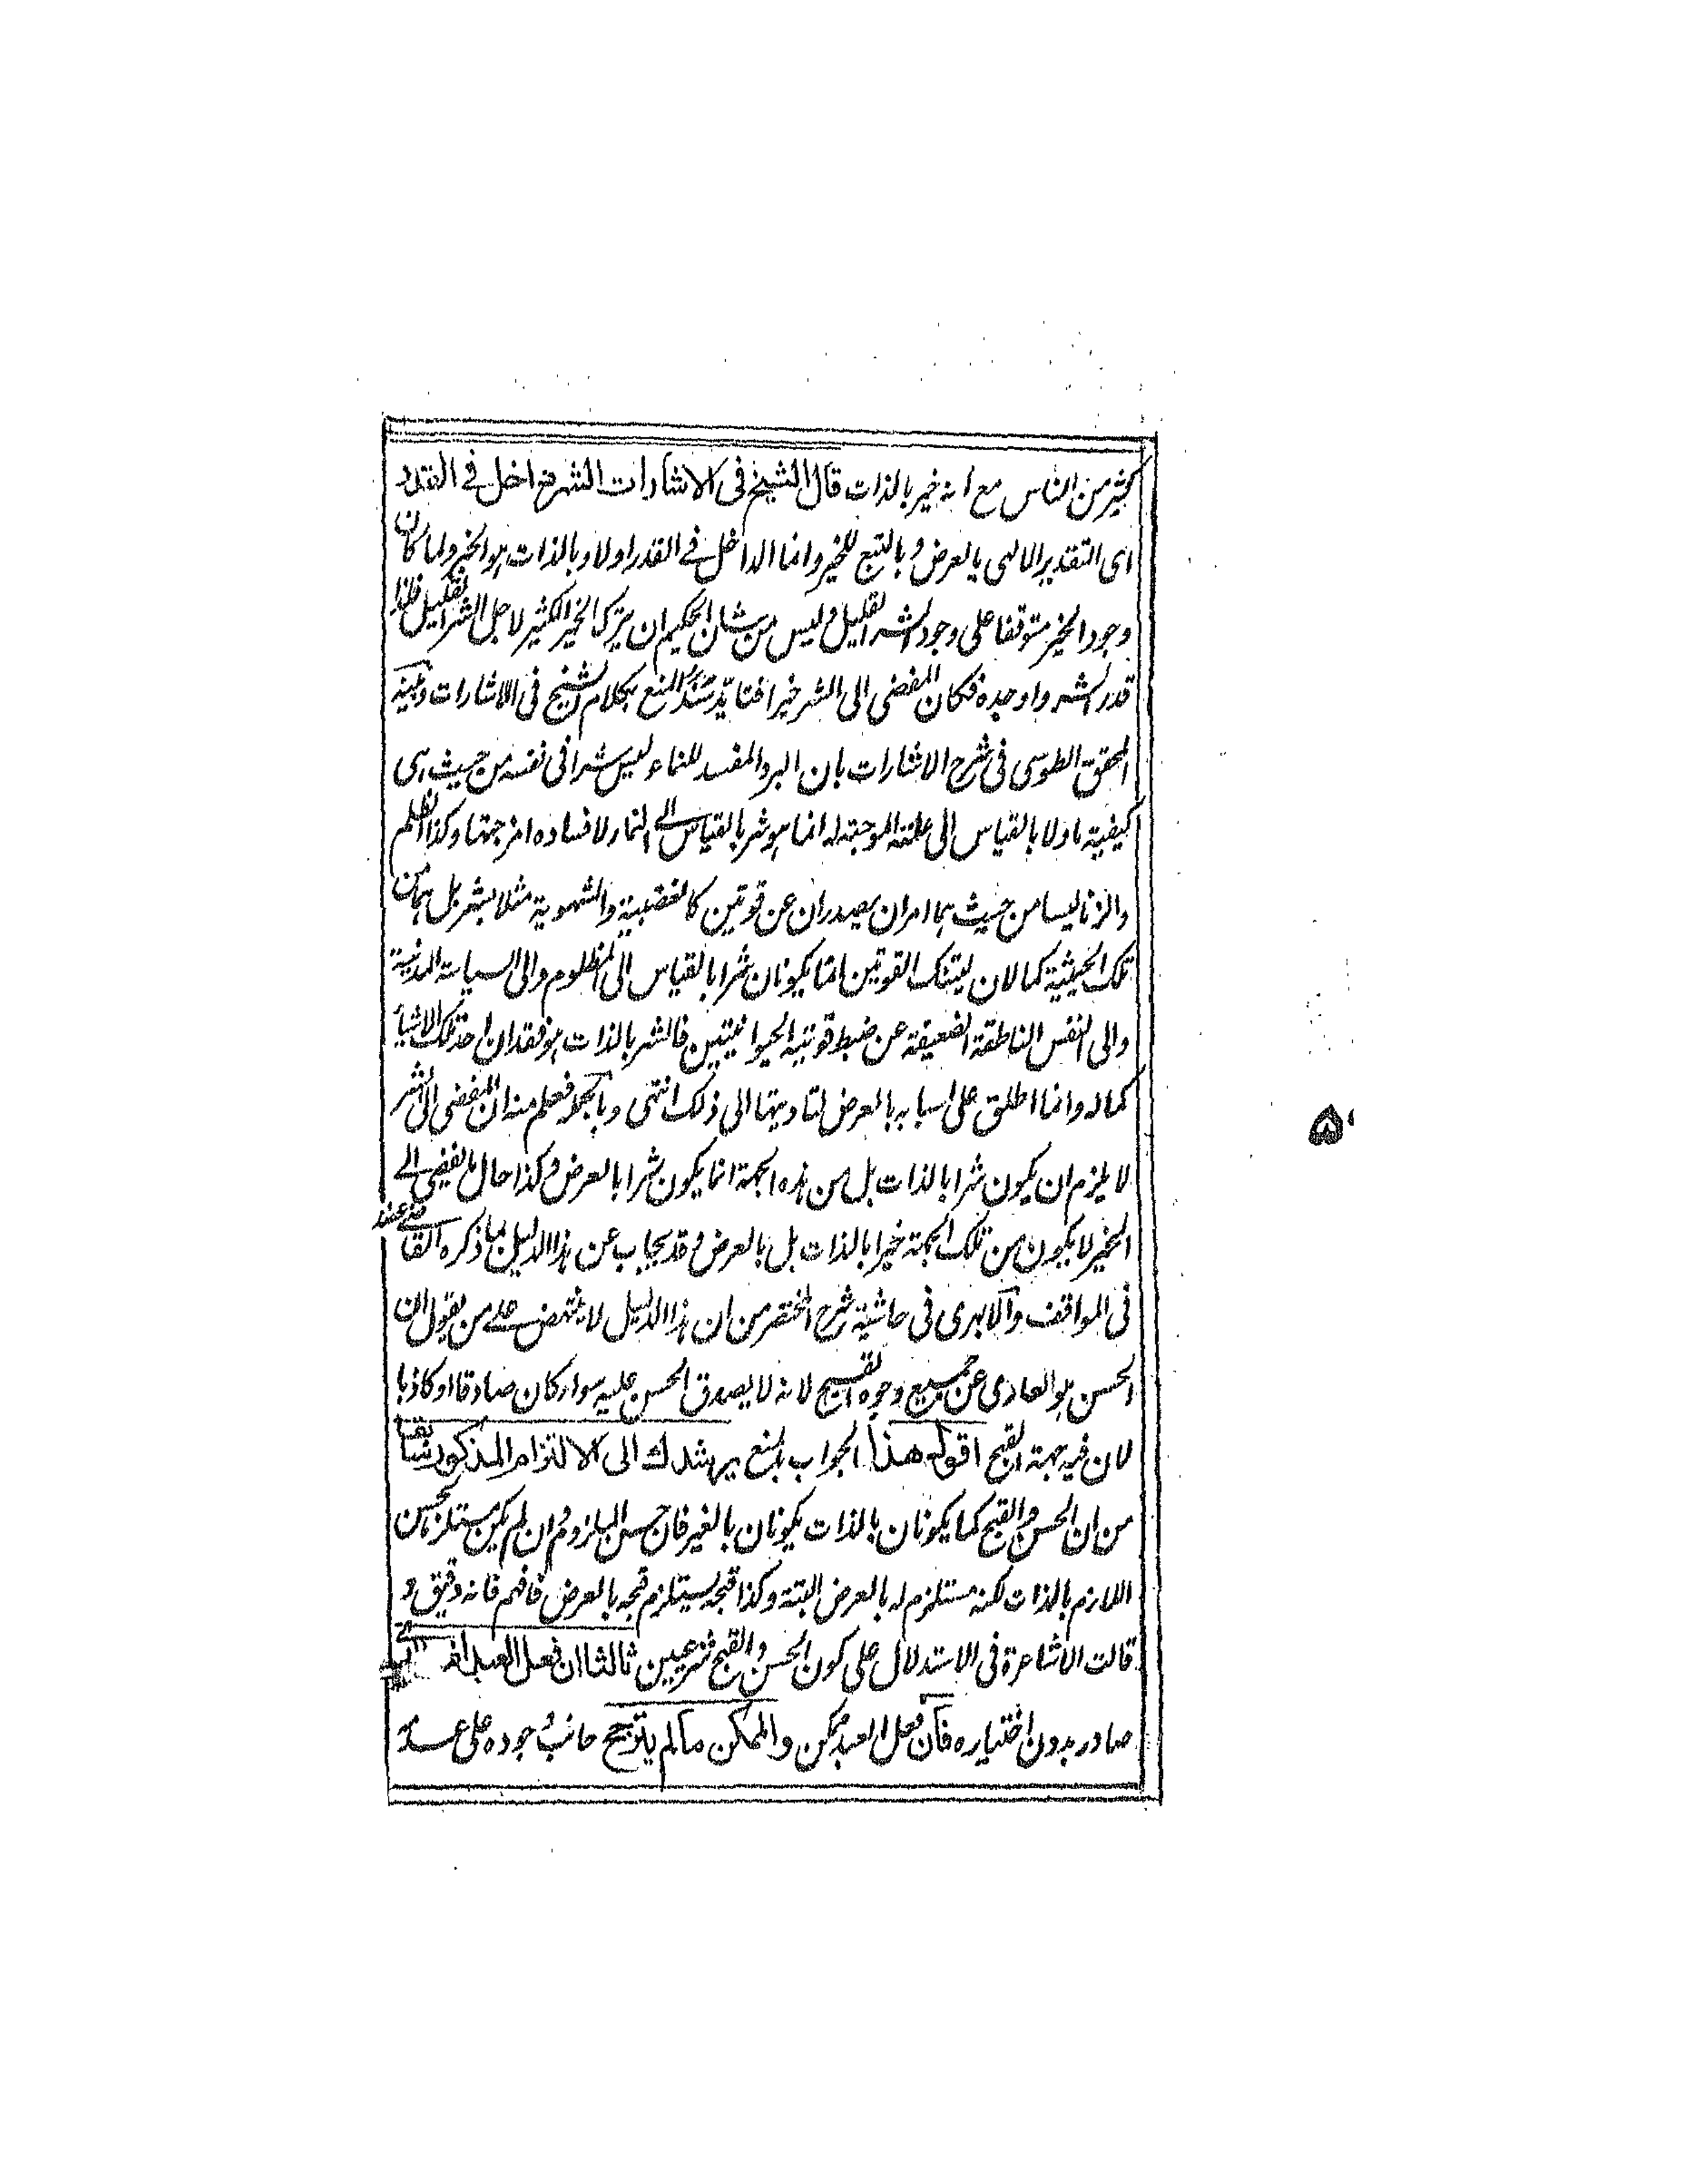 كثير من الناس مع انه خير بالذات قال الشيخ فى الاشارات الشر داخل فے القدر
اى التقدير الالهى بالعرض وبالتبع للخير وانما الداخل فے القدر اولا وبالذات هو الخير ولما كان
وجود الخير متوقفا على وجود الشر القليل وليس من شان الحكيم ان يترك الخير الكثير لاجل الشر القليل فلذا
قدر الشر واوجده فكان المفضى الى الشر خيرا فتايد سند المنع بكلام الشيخ فى الاشارات وبينه
المحقق الطوسى فى شرح الاشارات بان البرد المفسد للثمار ليس شرا فى نفسه من حيث هى
كيفية ما ولا بالقياس الى علته الموجبة له انما هو شر بالقياس الے الثمار لافساده امزجتها وكذا الظلم
والزنا ليسا من حيث هما امران يصدران عن قوتين كالغضبية والشهوية مثلا بشر بل هما من
تلك الحيثية كمالان لتينك القوتين انما يكونان شرا بالقياس الى المظلوم والى السياسة المدنية
والى النفس الناطقة الضعيفة عن ضبط قوتيه الحيوانيتين فالشر بالذات هو فقدان احد تلك الاشياء
كماله وانما اطلق على اسبابه بالعرض لتاديتها الى ذلك انتهى وبالجملة فعلم منه ان المفضى الى الشر
لا يلزم ان يكون شرا بالذات بل من هذه الجهة انما يكون شرا بالعرض وكذا حال ما يفضى الے
الخير لا يكون من تلك الجهة خيرا بالذات بل بالعرض وقد يجاب عن هذا الدليل بما ذكره القاضى عضد
فى المواقف والابهرى فى حاشية شرح المختصر من ان هذا الدليل لا ينتهض علے من يقول ان
الحسن هو العارى عن جميع وجوه القبح لانه لا يصدق الحسن عليه سواء كان صادقا او كاذبا
لان فيه جهة القبح اقول هذا الجواب بالمنع يرشدك الى الالتزام المذكور سابقا
من ان الحسن والقبح كما يكونان بالذات يكونان بالغير فان حسن الملزوم وان لم يكن مستلزما لحسن
اللازم بالذات لكنه مستلزم له بالعرض البتة وكذا قبحه يستلزم قبحه بالعرض فافهم فانه دقيق و
قالت الاشاعرة فى الاستدلال على كون الحسن والقبح شرعيين ثالثا ان فعل العبد
صادر بدون اختياره فان فعل العبد ممكن والممكن ما لم يترجح جانب وجوده على عدمه